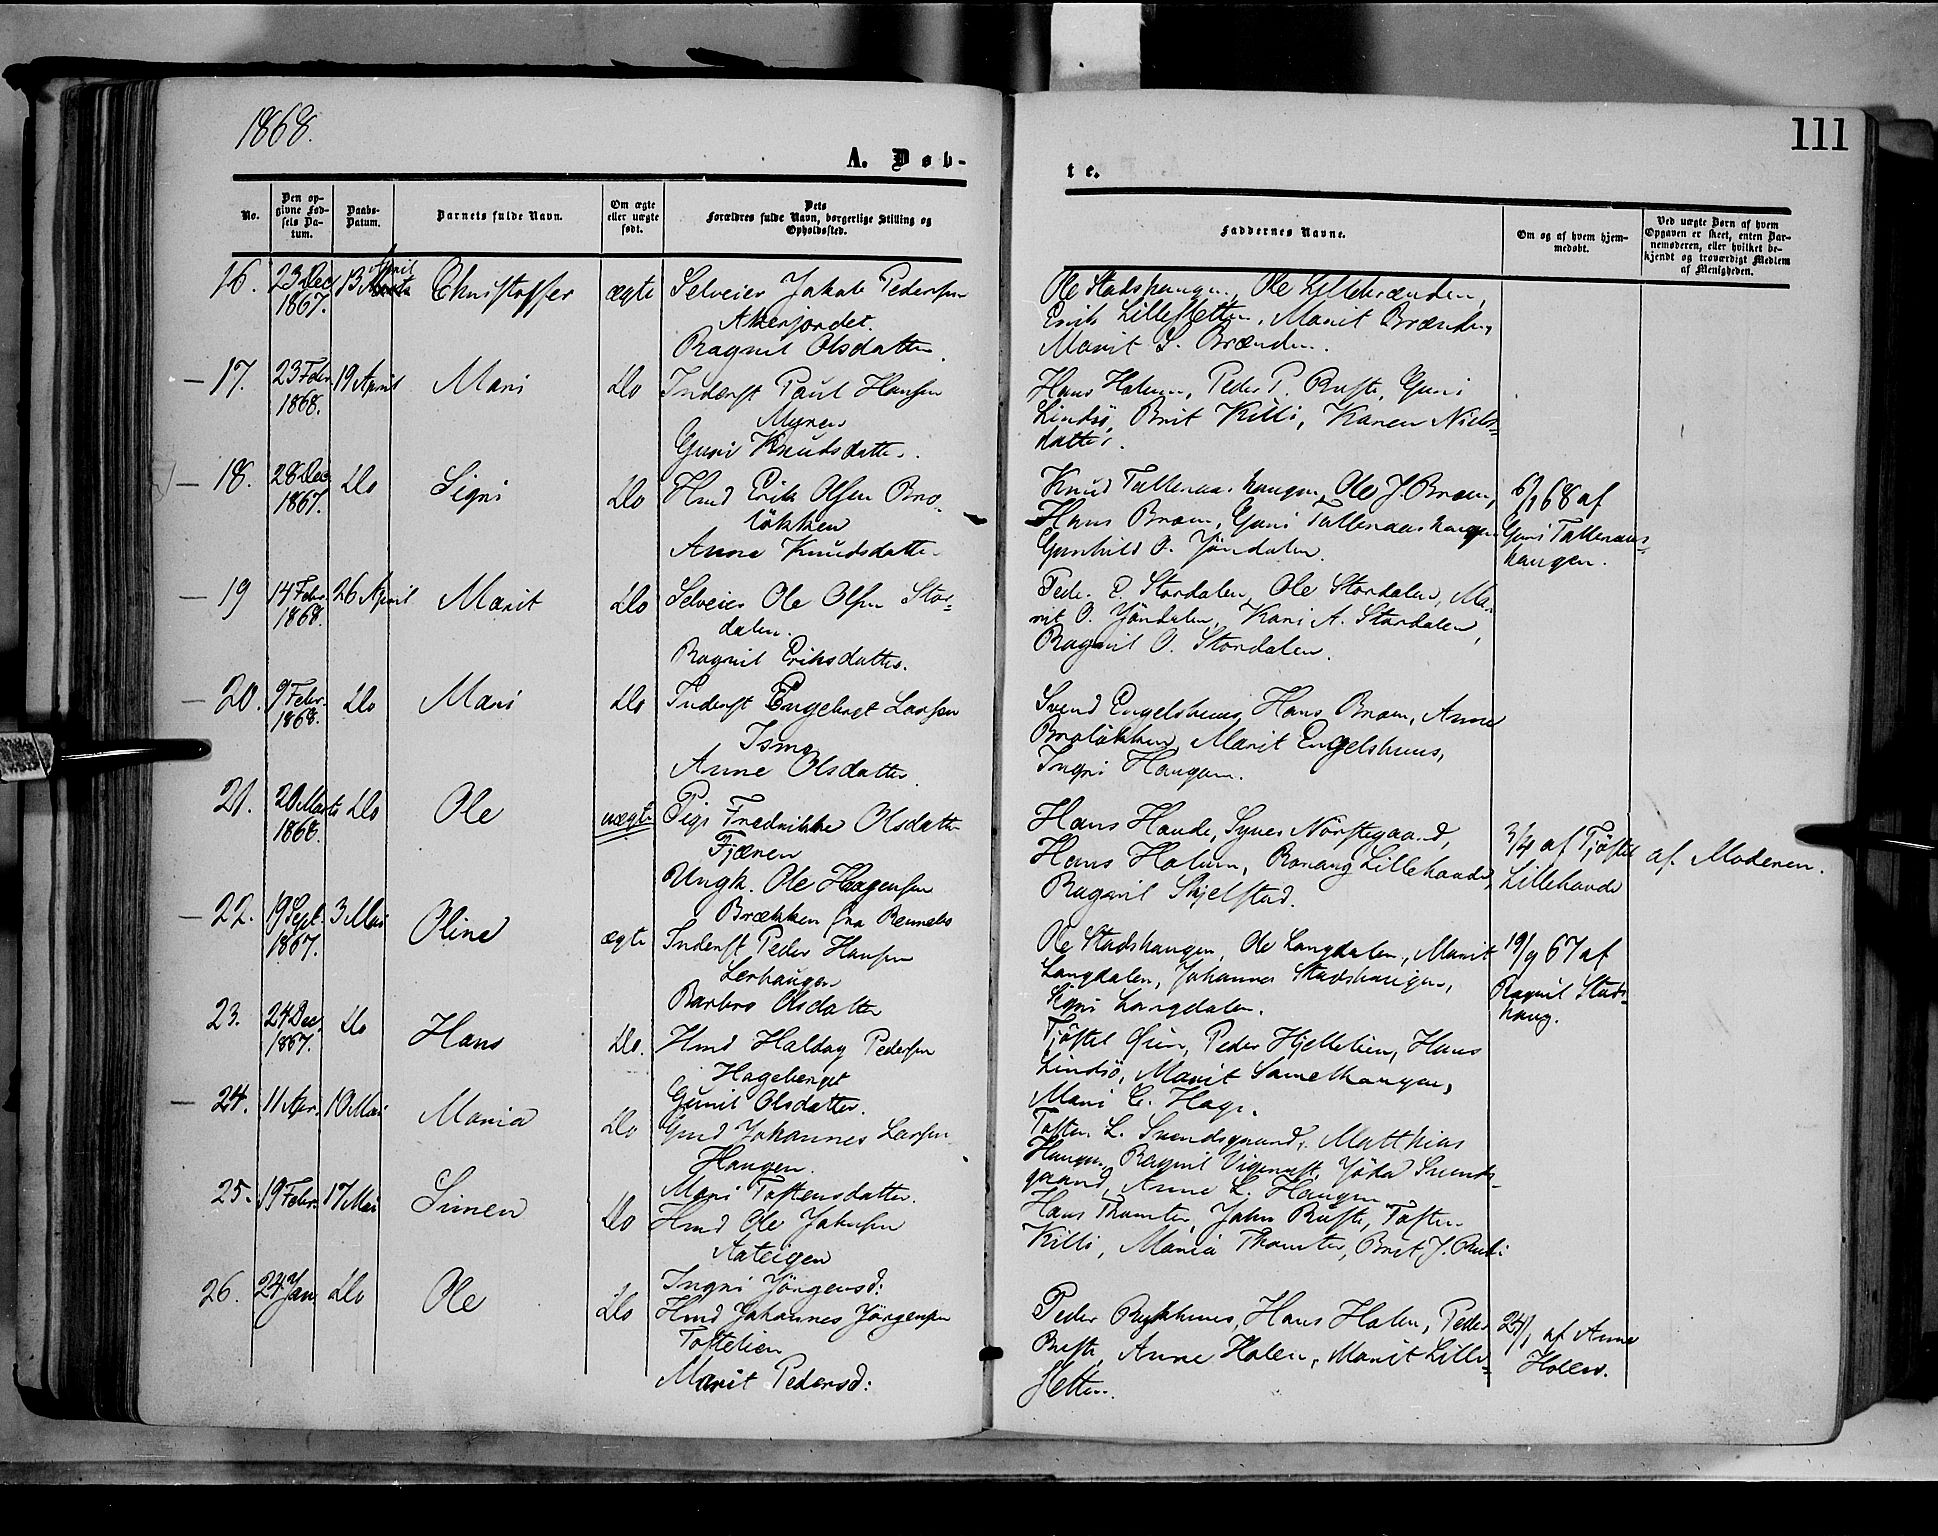 1868.
111
A. Døb-
te.
No.
Den op-
givne Fød-
sels Da-
tum.
Daabs-
Datum.
Barnets fulde Navn.
Om ægte
eller uægte
født.
Dets
Forældres fulde Navn, borgerlige Stilling og
Opholdssted.
Faddernes Navne.
Om og af hvem hjem-
medøbt.
Ved uægte Børn af hvem
Opgaven er skeet, enten Bar-
nemoderen, eller hvilket be-
kjendt og troværdigt Medlem
af Menigheden.
16. 23 Dec 1867. 13 April Christoffer ægte Selveier Jakob Pedersen
Akerjordet.
Ragnil Olsdatter.
Ole Stadshaugen, Ole Lillebrænden,
Erik Lillesletten, Marit Brænden,
Marit S. Brænden.
17. 23 Febr. 1868. 19 April Mari Do Inderst Paul Hansen
Myren
Guri Knudsdatter.
Hans Holum, Peder P. Buste, Guri
Lindsö, Brit Killi, Karen Niels-
datter.
18. 28 Dec. 1867. Do Signi Do Hmd Erik Olsen Bro-
løkken
Anne Knudsdatter
Knud Talleraashaugen, Ole J. Broen,
Hans Broen, Guri Talleraashaugen
Gunhild O. Jöndalen.
6/1 68 af
Guri Talleraas-
haugen.
19 14 Febr. 1868. 26 April Marit Do Selveier Ole Olsen Stor-
dalen.
Ragnil Eriksdatter.
Peder E. Stordalen, Ole Stordalen, Ma-
rit O. Jöndalen, Kari A. Stordalen,
Ragnil O. Stordalen.
20. 9 Febr. 1868. Do Mari Do Inderst Engebret Larsen
Ismo
Anne Olsdatter
Svend Engelshuus, Hans Broen, Anne
Broløkken, Marit Engelshuus,
Ingri Haugen.
21. 20 Marts 1868. Do Ole uægte Pige Fredrikke Olsdatter
Fjænen
Ungk. Ole Haagensen
Brækken fra Rennebo
Hans Haude, Synes Norstegaard,
Hans Holum, Ronaug Lillehaude,
Ragnil Skjelstad.
3/4 af Tjøstel
Lillehaude
af Moderen.
22. 19 Sept. 1867. 3 Mai Oline ægte Inderst Peder Hansen
Lerhaugen
Barbro Olsdatter
Ole Stadshaugen, Ole Langdalen, Marit
Langdalen, Johannes Stadshaugen,
Signi Langdalen.
19/9 67 af
Ragnil Stads-
haug.
23. 24 Dec. 1867. Do Hans Do. Hmd Haldog Pedersen
Hageberget
Gunil Olsdatter.
Tjøstel Øien, Peder Hjellelien, Hans
Lindsö, Marit Lamelhaugen,
Mari E. Hage.
24. 11 Apr. 10 Mai Maria Do Gmd Johannes Larsen
Haugen.
Mari Tostensdatter.
Tosten L. Svendsgaard, Matthias
Haugen, Ragnil Vigerust, Jöda Svends-
gaard, Anne L. Haugen
25. 19 Febr. 17 Mai Simen Do Hmd Ole Jakobsen
Aateigen
Ingri Jörgensd:
Hans Thomter, John Buste, Tosten
Killi, Maria Thomter, Brit J. Buste
26. 24 Jan. Do Ole Do Hmd Johannes Jörgensen
Toftelien
Marit Pedersd:
Peder Rykkhuus, Hans Holen, Peder
Buste, Anne Holen, Marit Lille-
sletten.
24/1 af Anne
Holen.